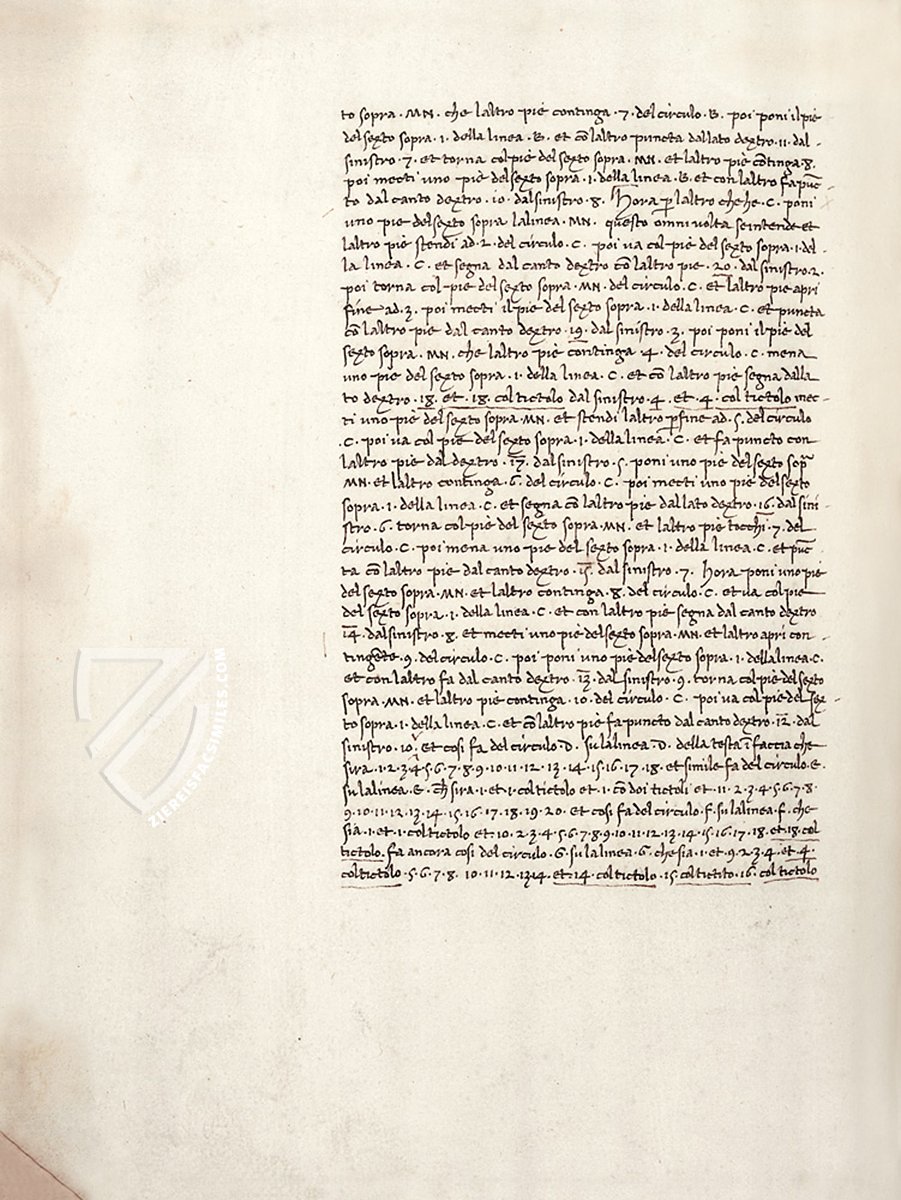 to sopra · MN · che laltro piè continga · 7 · del circulo · B · poi poni il piè
del sexto sopra · 1 · della linea · B · et cõ laltro puncta dallato dextro · 11 · dal
sinistro · 7 · et torna col piè del sexto sopra · MN · et laltro piè cõtinga · 8 ·
poi mecti uno piè del sexto sopra · 1 · della linea · B · et con laltro fa pũc
to dal canto dextro · 10 · dal sinistro · 8 · Hora p laltro che he · C · poni
uno piè del sexto sopra la linea · MN · questo omni volta se intende et
laltro piè stendi ad · 2 · del circulo · C · poi va col piè del sexto sopra · 1 · del
la linea · C · et segna dal canto dextro cõ laltro pie · 20 · dal sinistro · 2 ·
poi torna col piè del sexto sopra · MN · del circulo · C · et laltro pie apri
fine ad · 3 · poi mecti il piè del sexto sopra · 1 · della linea · C · et puncta
cõ laltro pie dal canto dextro · 19 · dal sinistro · 3 · poi poni il piè del
sexto sopra · MN · che laltro piè continga · 4 · del circulo · C · mena
uno piè del sexto sopra · 1 · della linea · C · et cõ laltro piè segna dalla
to dextro · 18 · et · 18 · col tictolo dal sinistro · 4 · et · 4 · col tictolo mec
ti uno piè del sexto sopra · MN · et stendi laltro p fine ad · 5 · del circulo
· C · poi va col pie del sexto sopra · 1 · della linea · C · et fa puncto con
laltro piè dal dextro · 17 · dal sinistro · 5 · poni uno piè del sexto sop̃
MN · et laltro continga · 6 · del circulo · C · poi mecti uno pie del sexto
sopra · 1 · della linea · C · et segna cõ laltro piè dal lato dextro · 16 · dal sini
stro · 6 · torna col piè del sexto sopra · MN · et laltro piè tocchi · 7 · del
circulo · C · poi mena uno piè del sexto sopra · 1 · della linea · C · et pũc
ta cõ laltro pie dal canto dextro · 15 · dal sinistro · 7 · Hora poni uno pie
del sexto sopra · MN · et laltro continga · 8 · del circulo · C · et va col pie
del sexto sopra · 1 · della linea · C · et con laltro piè segna dal canto dextro
14 · dal sinistro · 8 · et mecti uno piè del sexto sopra · MN · et laltro apri con
tingẽte · 9 · del circulo · C · poi poni uno piè del sexto sopra · 1 · della linea · C ·
et con laltro fa dal canto dextro · 13 · dal sinistro · 9 · torna col piè del sexto
sopra · MN · et laltro piè continga · 10 · del circulo · C · poi va col pie del sex
to sopra · 1 · della linea · C · et cõ laltro piè fa puncto dal canto dextro · 12 · dal
sinistro · 10 · et cosi fa del circulo · D · su la linea · D · della testa ĩ faccia che
sira · 1 · 2 · 3 · 4 · 5 · 6 · 7 · 8 · 9 · 10 · 11 · 12 · 13 · 14 · 15 · 16 · 17 · 18 · et simile fa del circulo · E ·
su la linea · E · ch̃ sira · 1 · et · 1 · col tictolo et · 1 · cõ doi tictoli et · 11 · 2 · 3 · 4 · 5 · 6 · 7 · 8 ·
9 · 10 · 11 · 12 · 13 · 14 · 15 · 16 · 17 · 18 · 19 · 20 · et cosi fa del circulo · F · su la linea · F · che
sia · 1 · et · 1 · col tictolo et · 10 · 2 · 3 · 4 · 5 · 6 · 7 · 8 · 9 · 10 · 11 · 12 · 13 · 14 · 15 · 16 · 17 · 18 · et · 18 · col
tictolo · fa ancora cosi del circulo · G · su la linea · G · che sia · 1 · et · 9 · 2 · 3 · 4 · et · 4 ·
col tictolo · 5 · 6 · 7 · 8 · 10 · 11 · 12 · 13 14 · et · 14 · col tictolo · 15 · col tictito · 16 · col tictolo
ZIEREISFACSIMILES.COM